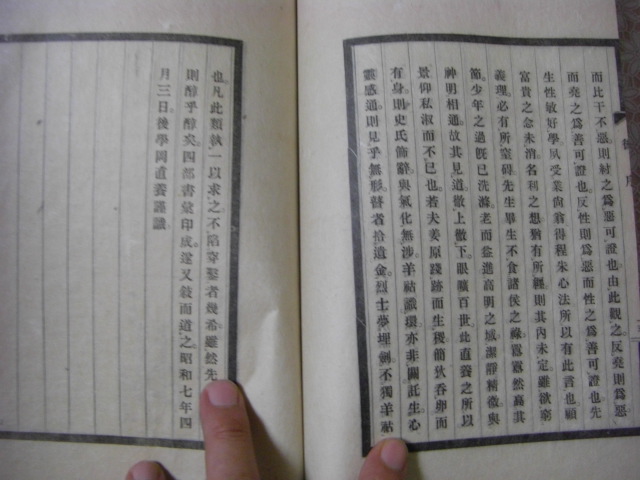 而比干不惡則紂之爲惡可證也由此觀之反堯則爲惡
而堯之爲善可證也反性則爲惡而性之爲善可證也先
生性敏好學夙受業尙翁得程朱心法所以有此言也顧
富貴之念未消名利之想猶有所經則其内未定雖欲窮
義理必有所窒碍先生畢生不食諸侯之祿囂囂然高其
節少年之過既已洗滌老而益進高明之域潔靜精微與
神明相通故其見道徹上徹下眼曠百世此直養之所以
景仰私淑而不已也若夫姜原踐跡而生稷簡狄呑卵而
有身則史氏飾辭與氣化無涉羊祜識環亦非關託生心
靈感通則見乎無形瞽者拾遺金烈士夢埋劍不獨羊祜
也凡此類執一以求之不陷穿鑿者幾希雖然先
則醇乎醇矣四部書彙印成遂又敍而道之昭和七年四
月三日後學岡直養謹識
序